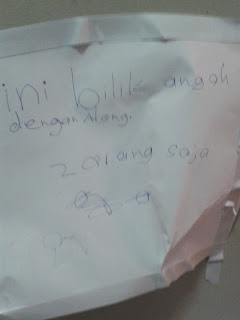 ini bilik angah
dengan Alang.
2 orang saja